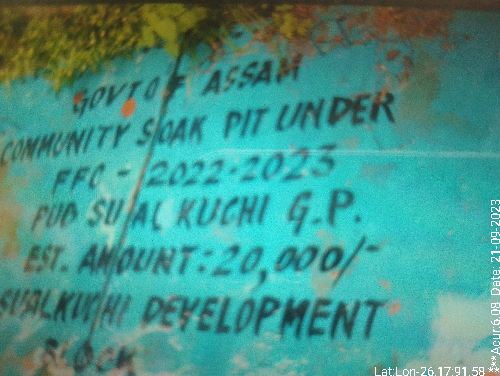 GOVT OF ASSAM
COMMUNITY SOAK PIT UNDER
FFC - 2022-2023
PUB SUALKUCHI G.P.
EST. AMOUNT: 20,000/-
SUALKUCHI DEVELOPMENT
BLOCK
Lat:Lon-26.17:91.58
***Acur:6.08 Date: 21-09-2023